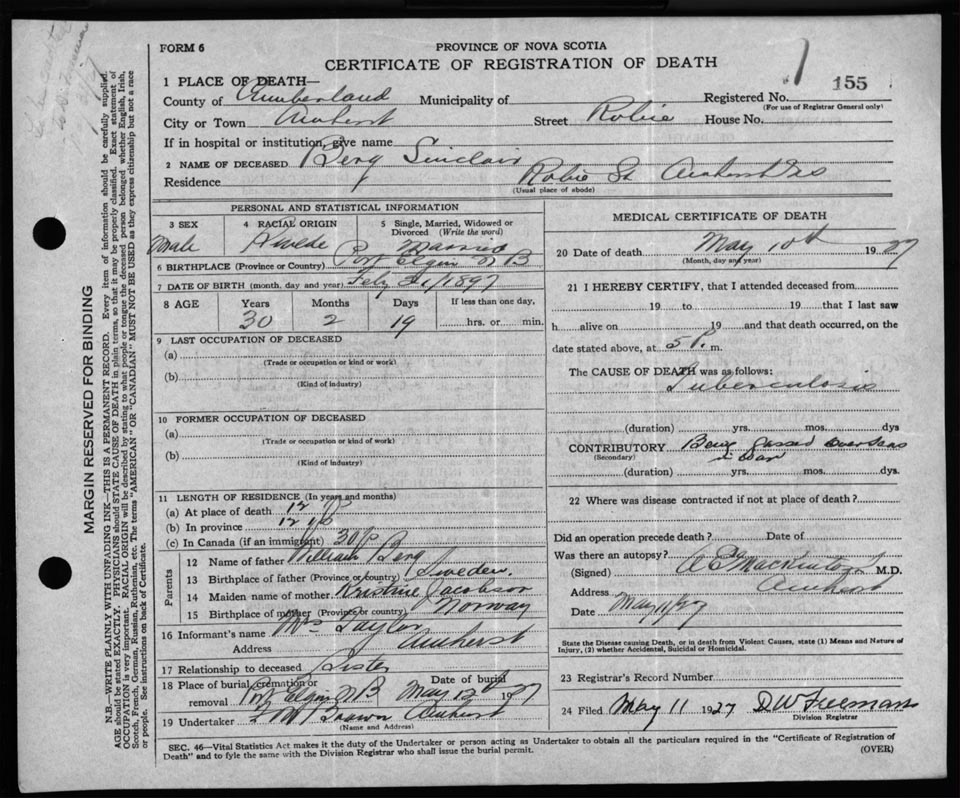 FORM 6
PROVINCE OF NOVA SCOTIA
CERTIFICATE OF REGISTRATION OF DEATH
155
1 PLACE OF DEATH—
County of Cumberland Municipality of Registered No.
(For use of Registrar General only)
City or Town Amherst Street Robie House No.
If in hospital or institution, give name
2 NAME OF DECEASED Berg Sinclair
Residence Robie St Amherst NS
(Usual place of abode)
PERSONAL AND STATISTICAL INFORMATION
3 SEX 4 RACIAL ORIGIN 5 Single, Married, Widowed or Divorced (Write the word)
Male Swede Married
6 BIRTHPLACE (Province or Country) Port Elgin N B
7 DATE OF BIRTH (month, day and year) Feby 21/1897
8 AGE Years Months Days If less than one day,
30 2 19 hrs. or min.
9 LAST OCCUPATION OF DECEASED
(a)
(Trade or occupation or kind or work)
(b)
(Kind of industry)
10 FORMER OCCUPATION OF DECEASED
(a)
(Trade or occupation or kind of work)
(b)
(Kind of industry)
11 LENGTH OF RESIDENCE (In years and months)
(a) At place of death 12
(b) In province 12
(c) In Canada (if an immigrant) 30
Parents
12 Name of father William Berg
13 Birthplace of father (Province or country) Sweden
14 Maiden name of mother Kristine Jacobson
15 Birthplace of mother (Province or country) Norway
16 Informant's name Mrs Taylor
Address Amherst
17 Relationship to deceased Sister
18 Place of burial, cremation or removal Port Elgin N B Date of burial May 12 1927
19 Undertaker Amherst
(Name and Address)
MEDICAL CERTIFICATE OF DEATH
20 Date of death May 10th 1927
(Month, day and year)
21 I HEREBY CERTIFY, that I attended deceased from
19 to 19 that I last saw
h alive on 19 and that death occurred, on the
date stated above, at 5 P. m.
The CAUSE OF DEATH was as follows:
Tuberculosis
(duration) yrs. mos. dys
CONTRIBUTORY Being gassed overseas
(Secondary) in war
(duration) yrs. mos. dys.
22 Where was disease contracted if not at place of death?
Did an operation precede death? Date of
Was there an autopsy?
(Signed) Mackintosh M.D.
Address Amherst
Date May 11/27
State the Disease causing Death, or in death from Violent Causes, state (1) Means and Nature of
Injury, (2) whether Accidental, Suicidal or Homicidal.
23 Registrar's Record Number
24 Filed May 11 1927 D W Freeman
Division Registrar
SEC. 46—Vital Statistics Act makes it the duty of the Undertaker or person acting as Undertaker to obtain all the particulars required in the "Certificate of Registration of
Death" and to fyle the same with the Division Registrar who shall issue the burial permit. (OVER)
MARGIN RESERVED FOR BINDING
N.B.—WRITE PLAINLY WITH UNFADING INK—THIS IS A PERMANENT RECORD. Every item of information should be carefully supplied.
AGE should be stated EXACTLY. PHYSICIANS should STATE CAUSE OF DEATH in plain terms, so that it may be properly classified. Exact statement of
OCCUPATION is very important. RACIAL ORIGIN will be described by stating to what people or tongue the deceased person belonged whether English, Irish,
Scotch, French, German, Russian, Ruthenian, etc. The terms "AMERICAN" OR "CANADIAN" MUST NOT BE USED as they express citizenship but not a race
or people. See instructions on back of Certificate.